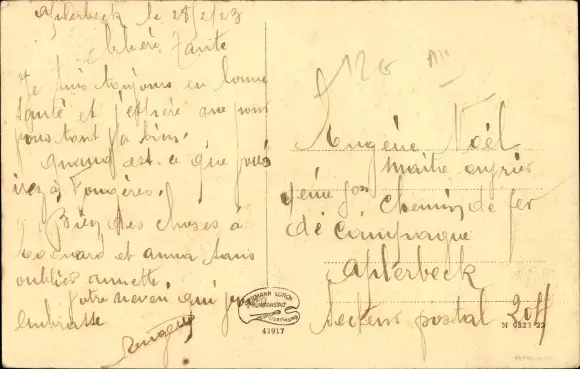 Aplerbeck le 28/2/23
Chère Tante
Je suis toujours en bonne
santé et j'espère que pour
vous tout va bien.
quand est-ce que vous
irez à Fougères.
Bien des choses à
et anna sans
oublier annette.
Votre neveu qui vous
embrasse
Eugène
Eugène Noël
maitre ouvrier
chemin de fer
de campagne
Aplerbeck
Secteur postal 204
HERMANN LORCH
KUNSTANSTALT
DORTMUND
41917
N 9823 22